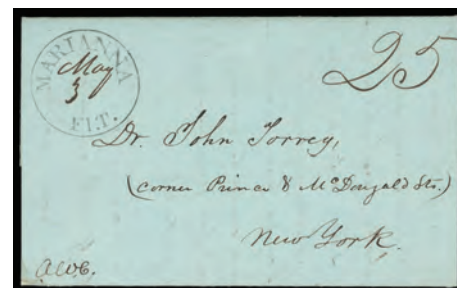 MARIANNA
May
3
Fl.T.
25
Dr. John Torrey,
(corner Prince & McDougald Sts.)
New York.